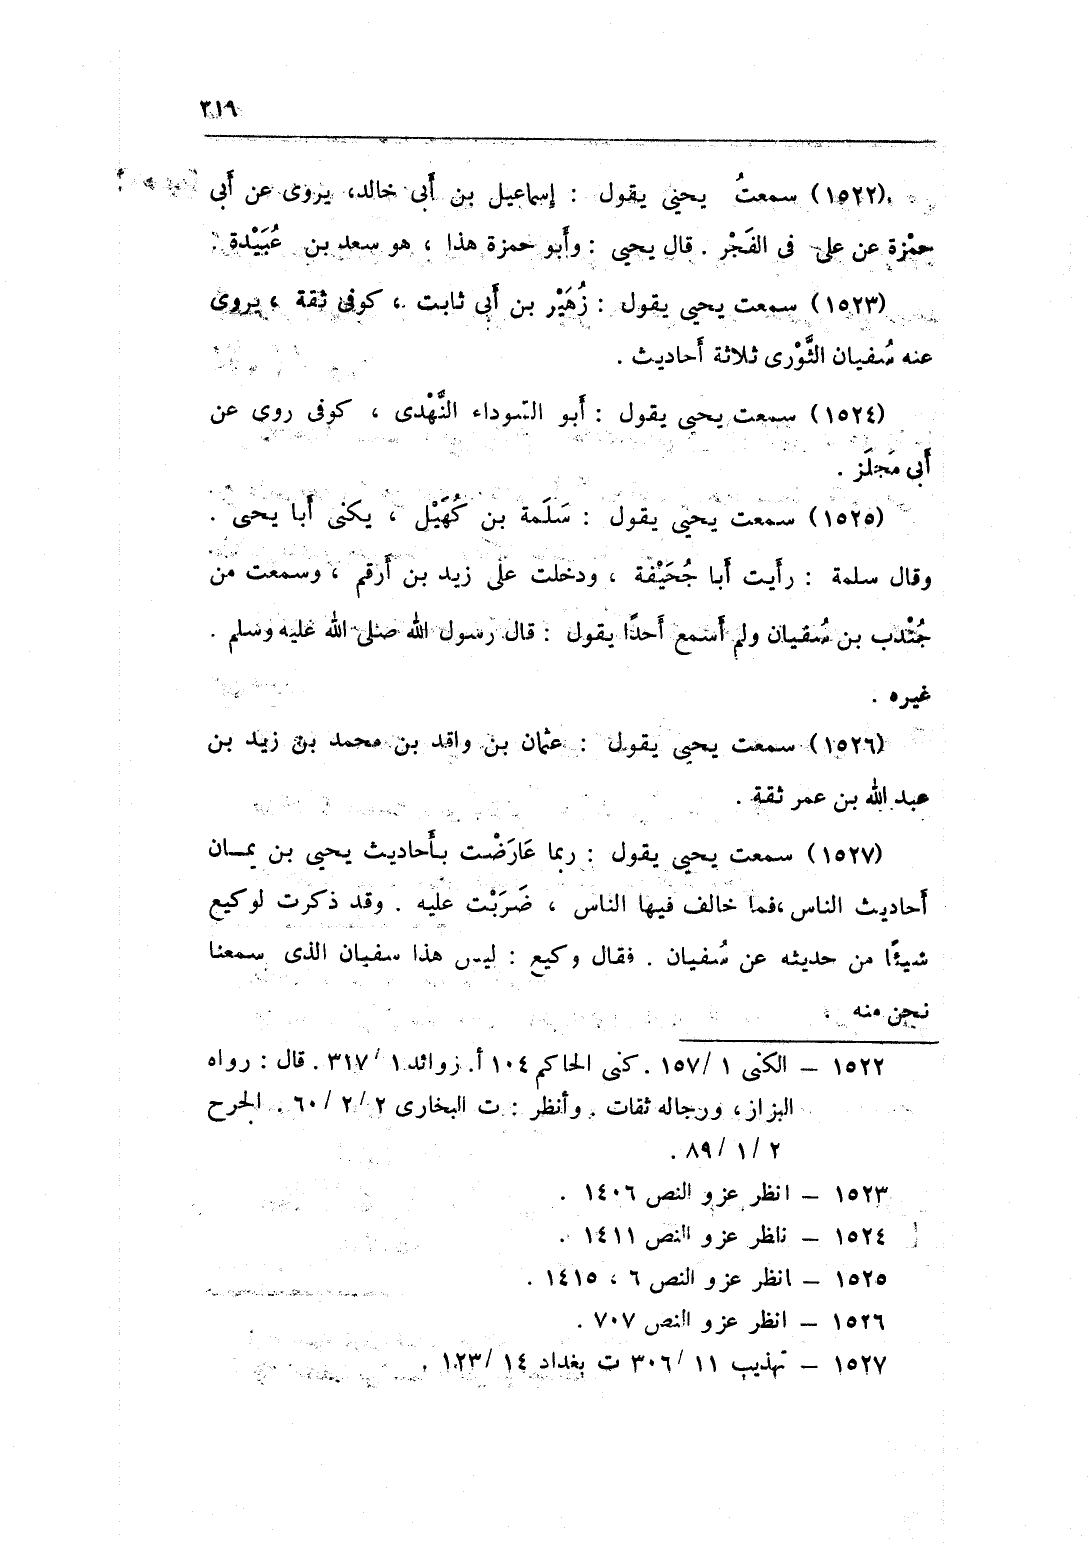 ٣١٩
(١٥٢٢) سمعتُ يحيى يقول : إسماعيل بن أَبى خالد، يروى عن أَبى
حمْزة عن على فى الفَجْر . قال يحيى : وأَبو حمزة هذا ، هو سعد بن عُبَيْدة .
(١٥٢٣) سمعت يحيى يقول : زُهَيْر بن أَبى ثابت ، كوفى ثقة ، يروى
عنه سُفيان الثَّوْرى ثلاثة أَحاديث .
(١٥٢٤) سمعت يحيى يقول : أَبو السوداء النَّهْدى ، كوفى روى عن
أَبى مَجلَز .
(١٥٢٥) سمعت يحيى يقول : سَلَمة بن كُهَيْل ، يكنى أَبا يحيى .
وقال سلمة : رأَيت أَبا جُحَيْفة ، ودخلت على زيد بن أَرقم ، وسمعت من
جُنْدب بن سُفيان ولم أَسمع أَحدًا يقول : قال رسول الله صلى الله عليه وسلم .
غيره .
(١٥٢٦) سمعت يحيى يقول : عثمان بن واقد بن محمد بن زيد بن
عبد الله بن عمر ثقة .
(١٥٢٧) سمعت يحيى يقول : ربما عَارَضْت بأَحاديث يحيى بن يمـان
أَحاديث الناس ،فما خالف فيها الناس ، ضَرَبْت عليه . وقد ذكرت لوكيع
شيئًا من حديثه عن سُفيان . فقال وكيع : ليس هذا سفيان الذى سمعنا
نحن منه .
١٥٢٢ – الكنى ١ /١٥٧ . كنى الحاكم ١٠٤ أ. زوائد ١ /٣١٧ . قال : رواه
البزاز، ورجاله ثقات . وأنظر : ت البخارى ٢ /٢ /٦٠ . الجرح
٢ /١ /٨٩ .
١٥٢٣ – انظر عزو النص ١٤٠٦ .
١٥٢٤ – ناظر عزو النص ١٤١١ .
١٥٢٥ – انظر عزو النص ٦ ، ١٤١٥ .
١٥٢٦ – انظر عزو النص ٧٠٧ .
١٥٢٧ – تهذيب ١١ /٣٠٦ ت بغداد ١٤ /١٢٣ .